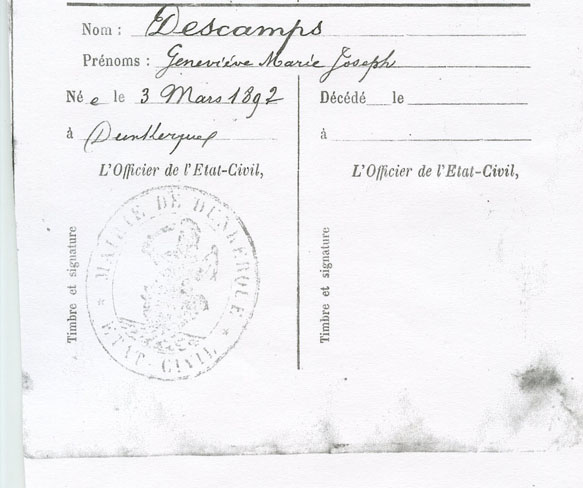 Nom : Descamps
Prénoms : Geneviève Marie Joseph
Née le 3 Mars 1892
à Dunkerque
L'Officier de l'Etat-Civil,
Timbre et signature
MAIRIE DE DUNKERQUE
* ETAT-CIVIL *
Décédé le
à
L'Officier de l'Etat-Civil,
Timbre et signature